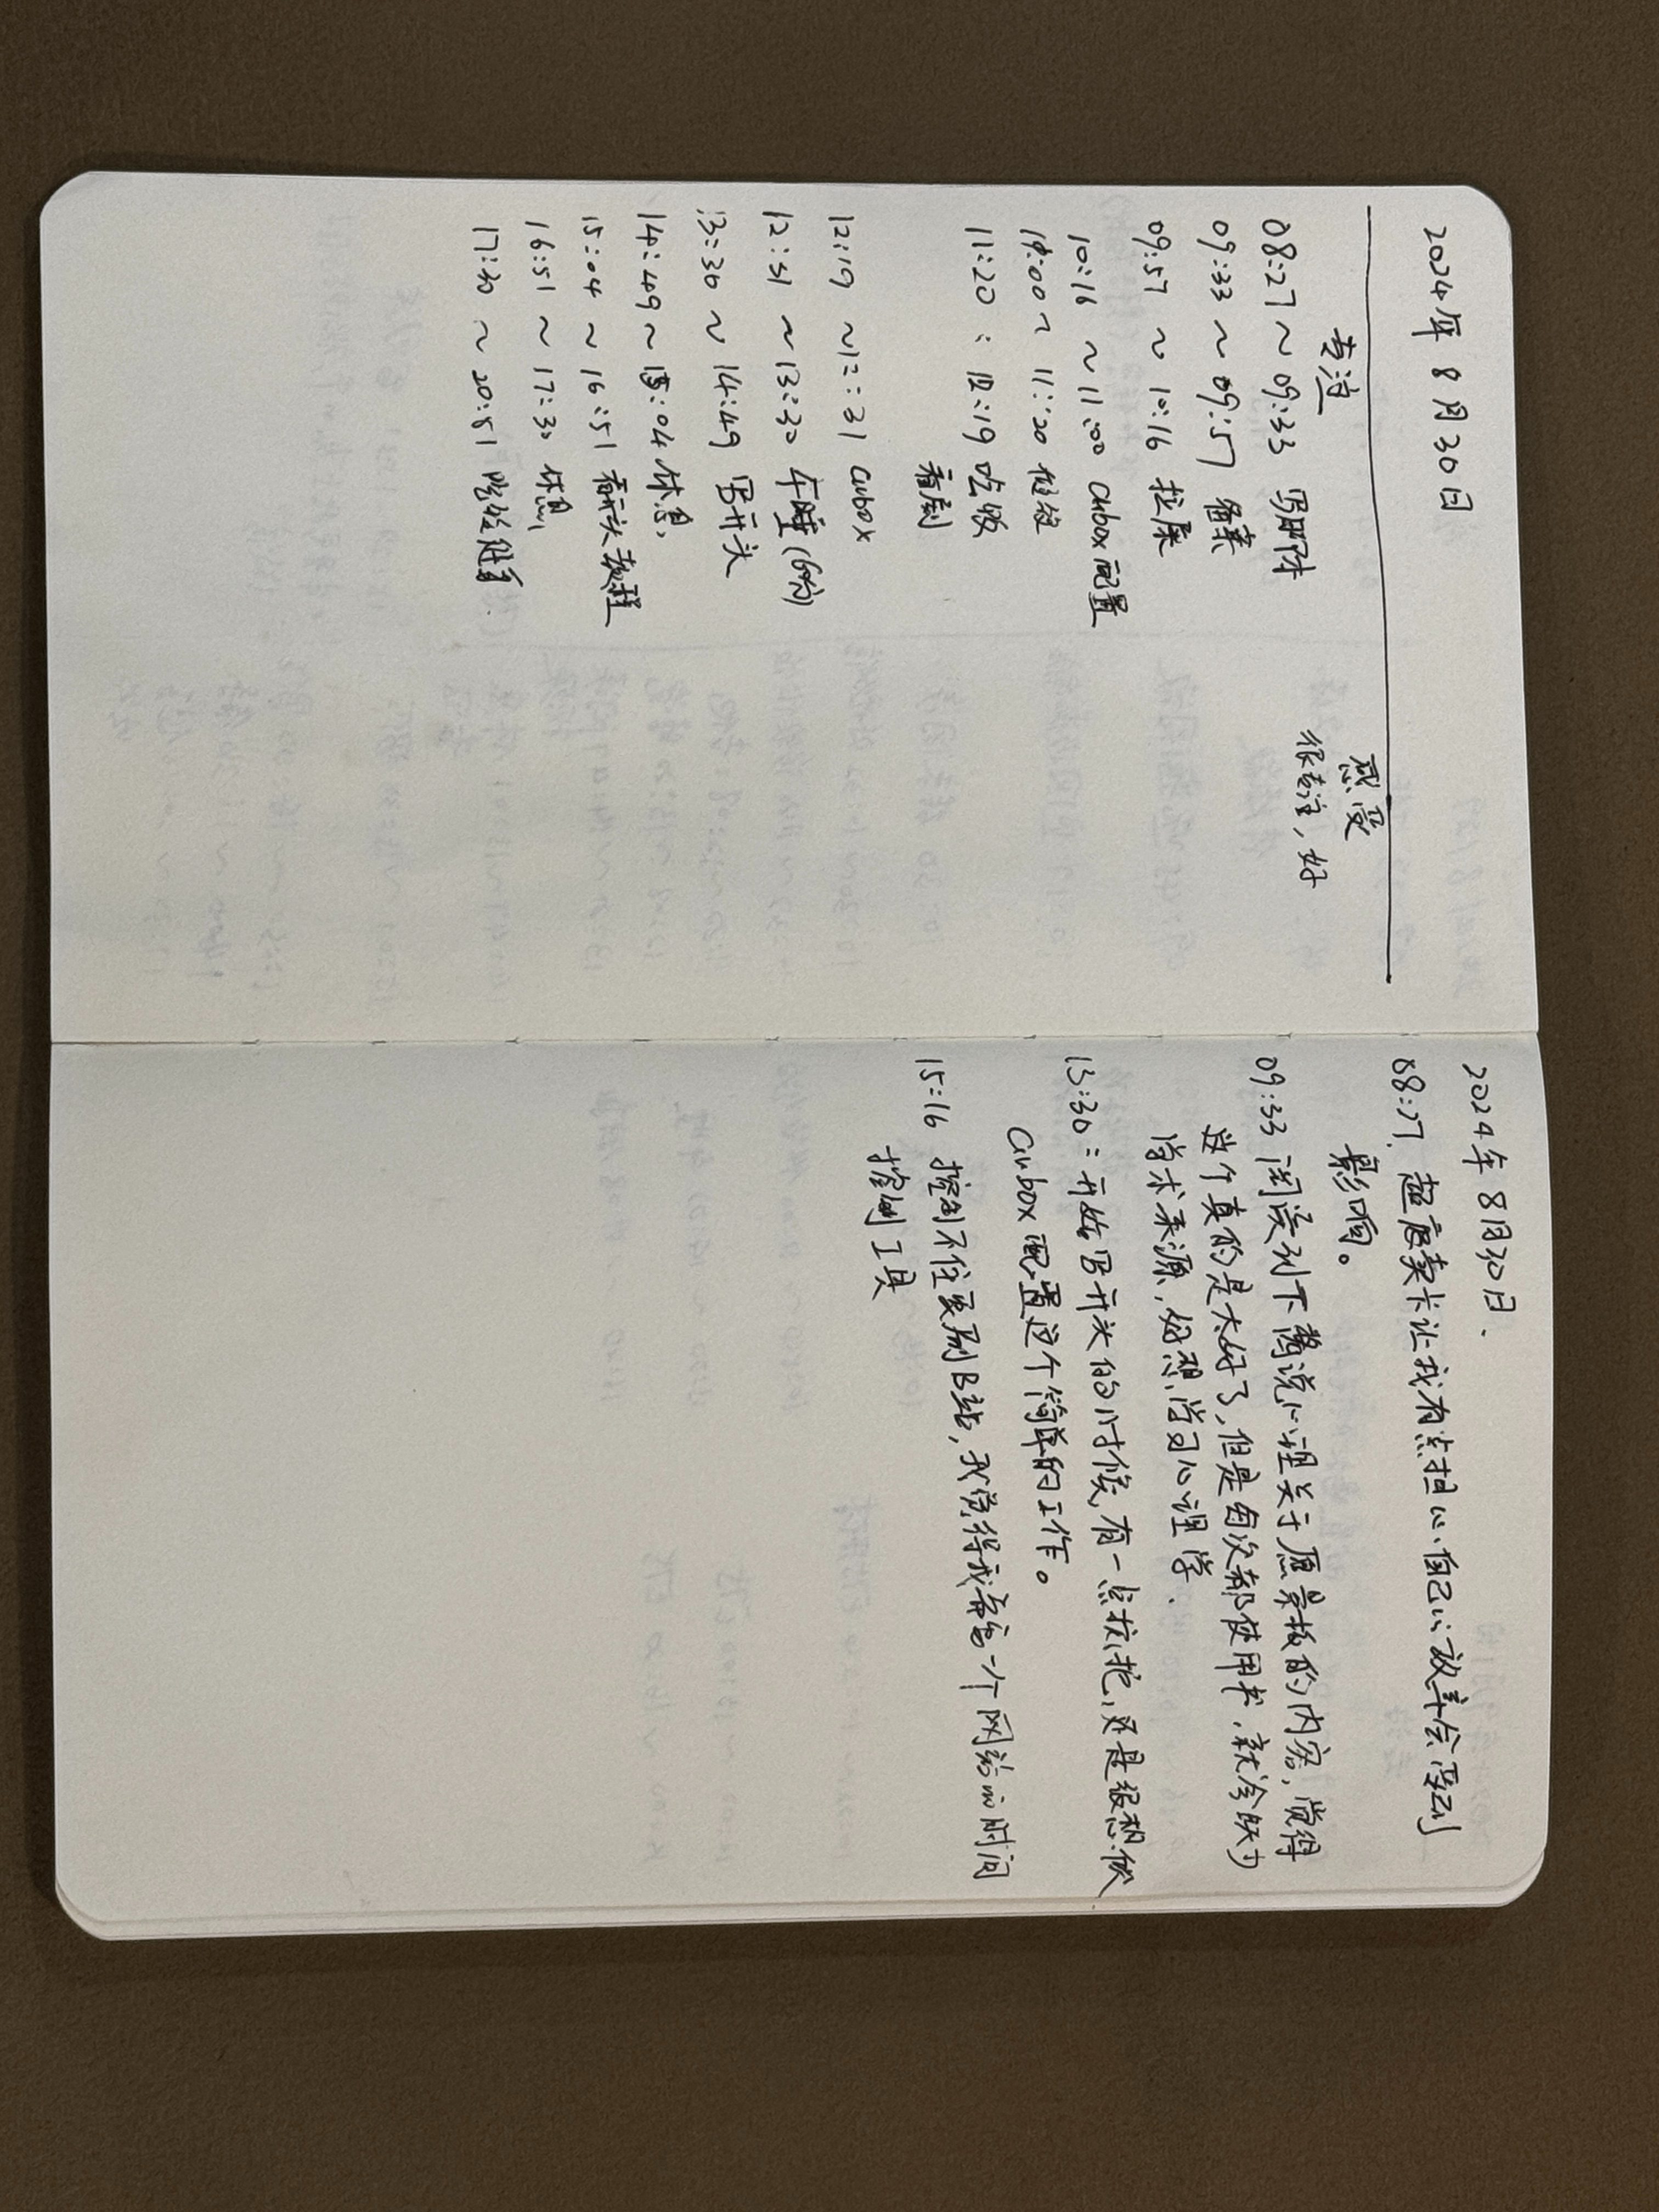 2024年8月30日
专注 感受
08:27 ~ 09:33 写 很专注，好
09:33 ~ 09:57
09:57 ~ 10:16 拉屎
10:16 ~ 11:00 Cubox配置
11:00 ~ 11:20
11:20 : 12:19 吃饭
看剧
12:19 ~ 12:31 Cubox
12:31 ~ 13:30 午睡(60分)
13:30 ~ 14:49 写开头
14:49 ~ 15:04 休息
15:04 ~ 16:51 看开头教程
16:51 ~ 17:30 休息
17:30 ~ 20:51
2024年8月30日.
08:27. 超废卖卡让我有点担心自己心放弃会受到
影响。
09:33 阅读到下酱说心理关于愿景板的内容，觉得
这个真的是太好了，但是每次都使用书，就会缺少
学术来源，好想学习心理学.
13:30 : 开始写开头的时候，有一点抗拒，还是很想做
Cubox配置这个简单的工作。
15:16 控制不住要刷B站，我觉得我需要一个网络的时间
控制工具